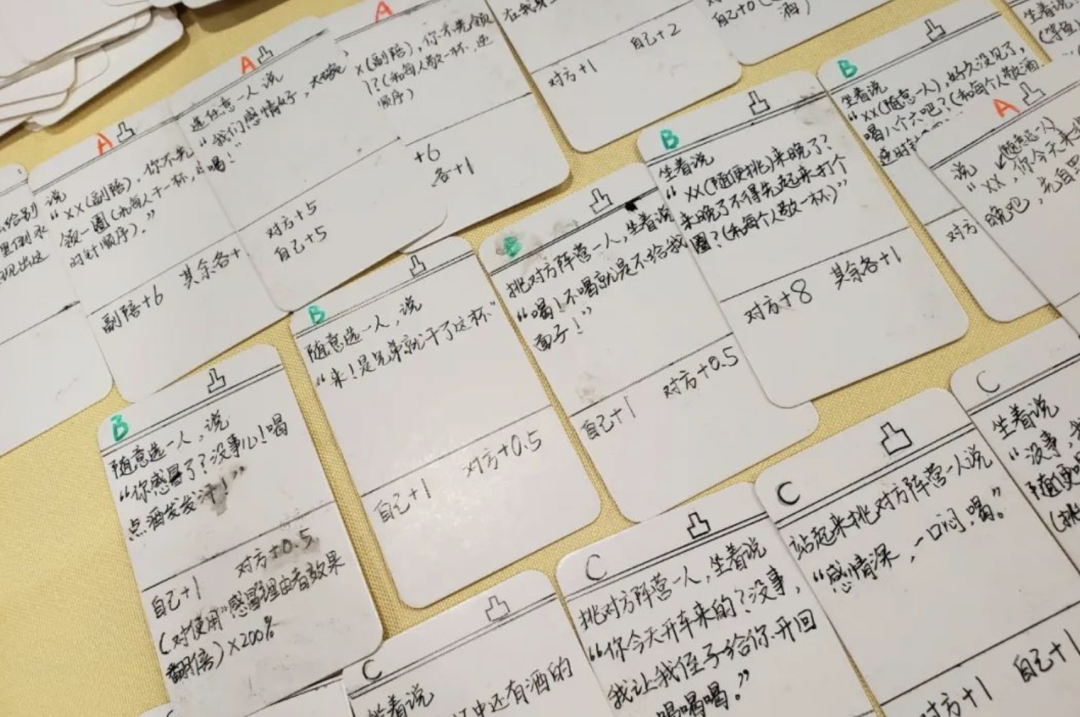 自己+2
对方+1
自己+0
A
x(副陪),你不先领
)?(和每人敬一杯,逆
顺序)
+6
各+1
A
选任意一人说
"我们感情好,大口
喝!"
对方+5
自己+5
A
说
"xx(副陪),你不先
领一圈(和每人干一杯,
时针顺序)."
副陪+6 其余各+
B
生着说
"xx(随意一人),好久没见了,
喝八个六吧?(和每个人敬酒
B
坐着说
"xx(随便挑)来晚了?
来晚了不得先起来打个
圈?(和每个人敬一杯)"
对方+8 其余各+1
A
说 随意选一人
"xx,你今天来
晚吧,先自罚
对方
B
挑对方阵营一人,坐着说
"喝!不喝就是不给我
面子!"
自己+1 对方+0.5
B
随意选一人,说
"来!是兄弟就干了这杯"
自己+1 对方+0.5
B
随意选一人,说
"你感冒了?没事儿!喝
点酒发发汗!"
自己+1 对方+0.5
(对使用"感冒理由者效果
翻倍)×200%
C
坐着说
"没事,
C
站起来挑对方阵营一人说
"感情深,一口闷,喝。"
对方+1 自己+1
C
挑对方阵营一人,坐着说
"你今天开车来的?没事,
我让我侄子给你开回
喝喝喝。"
C
坐着说
中还有酒的